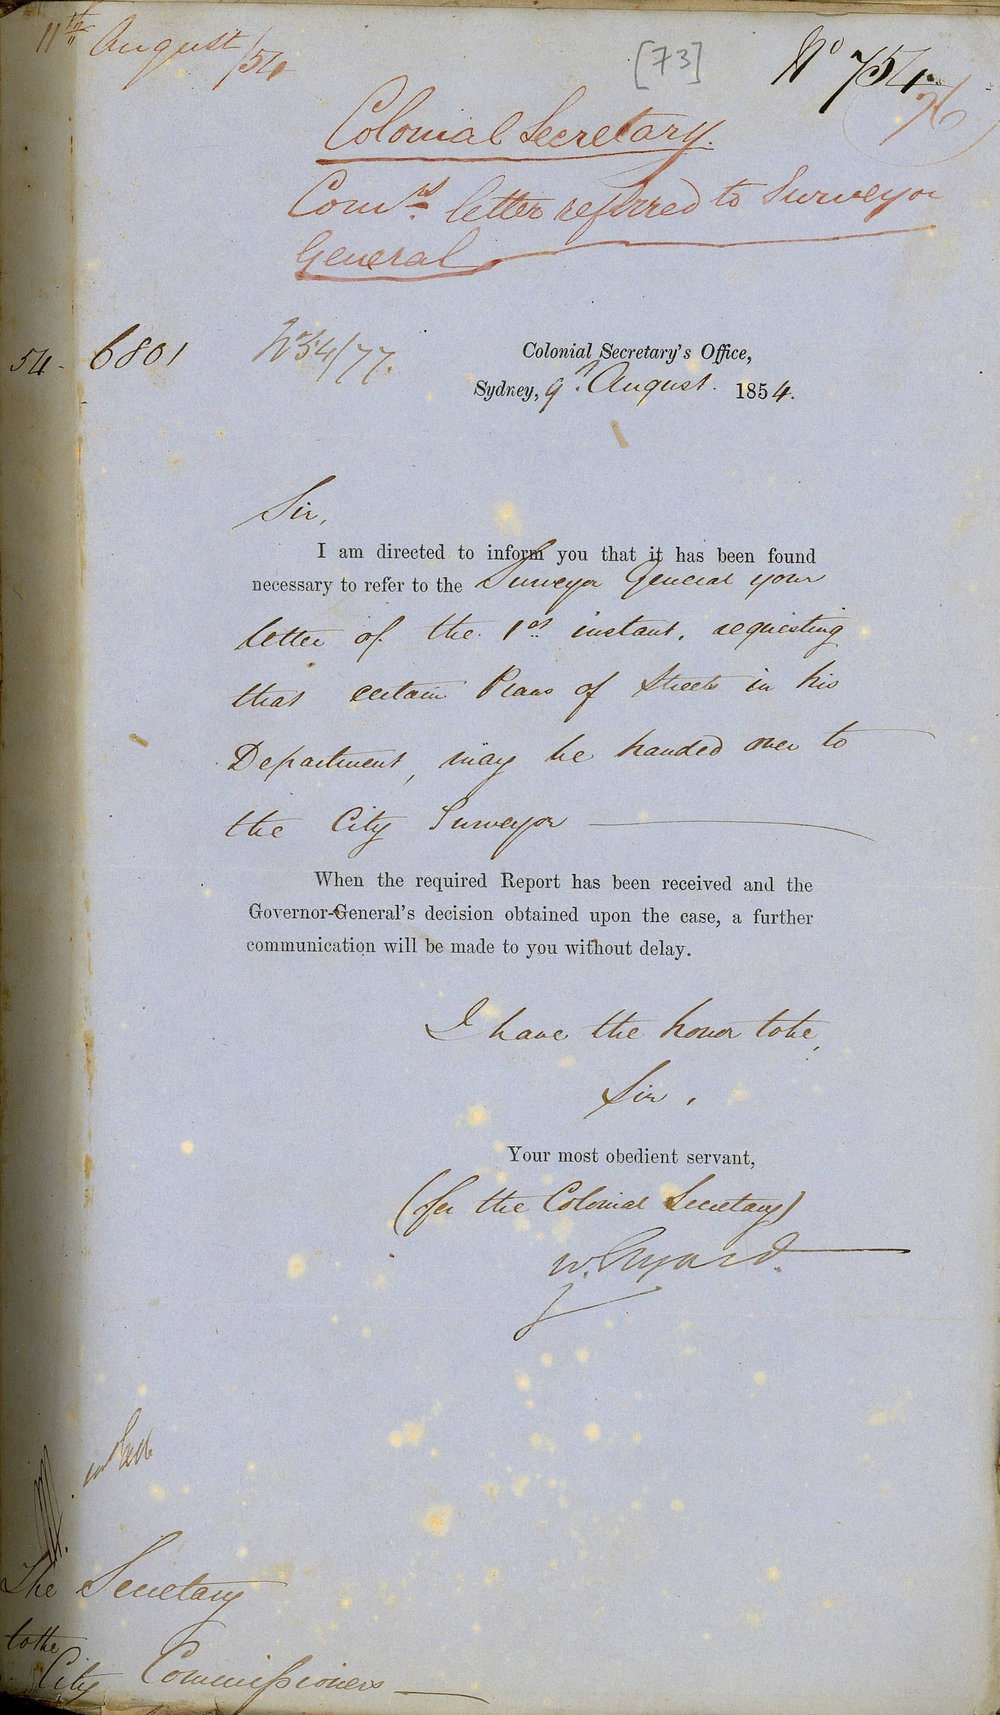 11th August /54
[73]
No 754
76
Colonial Secretary.
Comrs letter referred to Surveyor
General
54- 6801
54/77.
Colonial Secretary's Office,
Sydney, 9th August. 1854.
Sir,
I am directed to inform you that it has been found
necessary to refer to the Surveyor General your
letter of the 1st instant, requesting
that certain Plans of Streets in his
Department, may be handed over to
the City Surveyor
When the required Report has been received and the
Governor-General's decision obtained upon the case, a further
communication will be made to you without delay.
I have the honor to be,
Sir,
Your most obedient servant,
(for the Colonial Secretary)
W. Elyard.
The Secretary
to the
City Commissioners